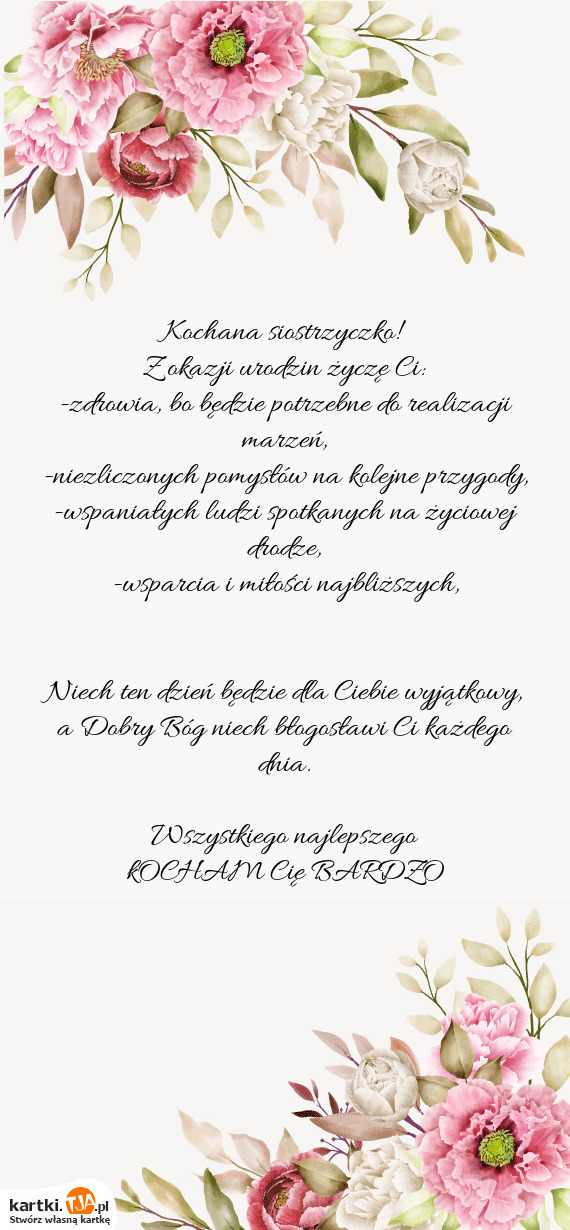 Kochana siostrzyczko!
Z okazji urodzin życzę Ci:
-zdrowia, bo będzie potrzebne do realizacji
marzeń,
-niezliczonych pomysłów na kolejne przygody,
-wspaniałych ludzi spotkanych na życiowej
drodze,
-wsparcia i miłości najbliższych,
Niech ten dzień będzie dla Ciebie wyjątkowy,
a Dobry Bóg niech błogosławi Ci każdego
dnia.
Wszystkiego najlepszego
kOCHAM Cię BARDZO
kartki.TJA.pl
Stwórz własną kartkę